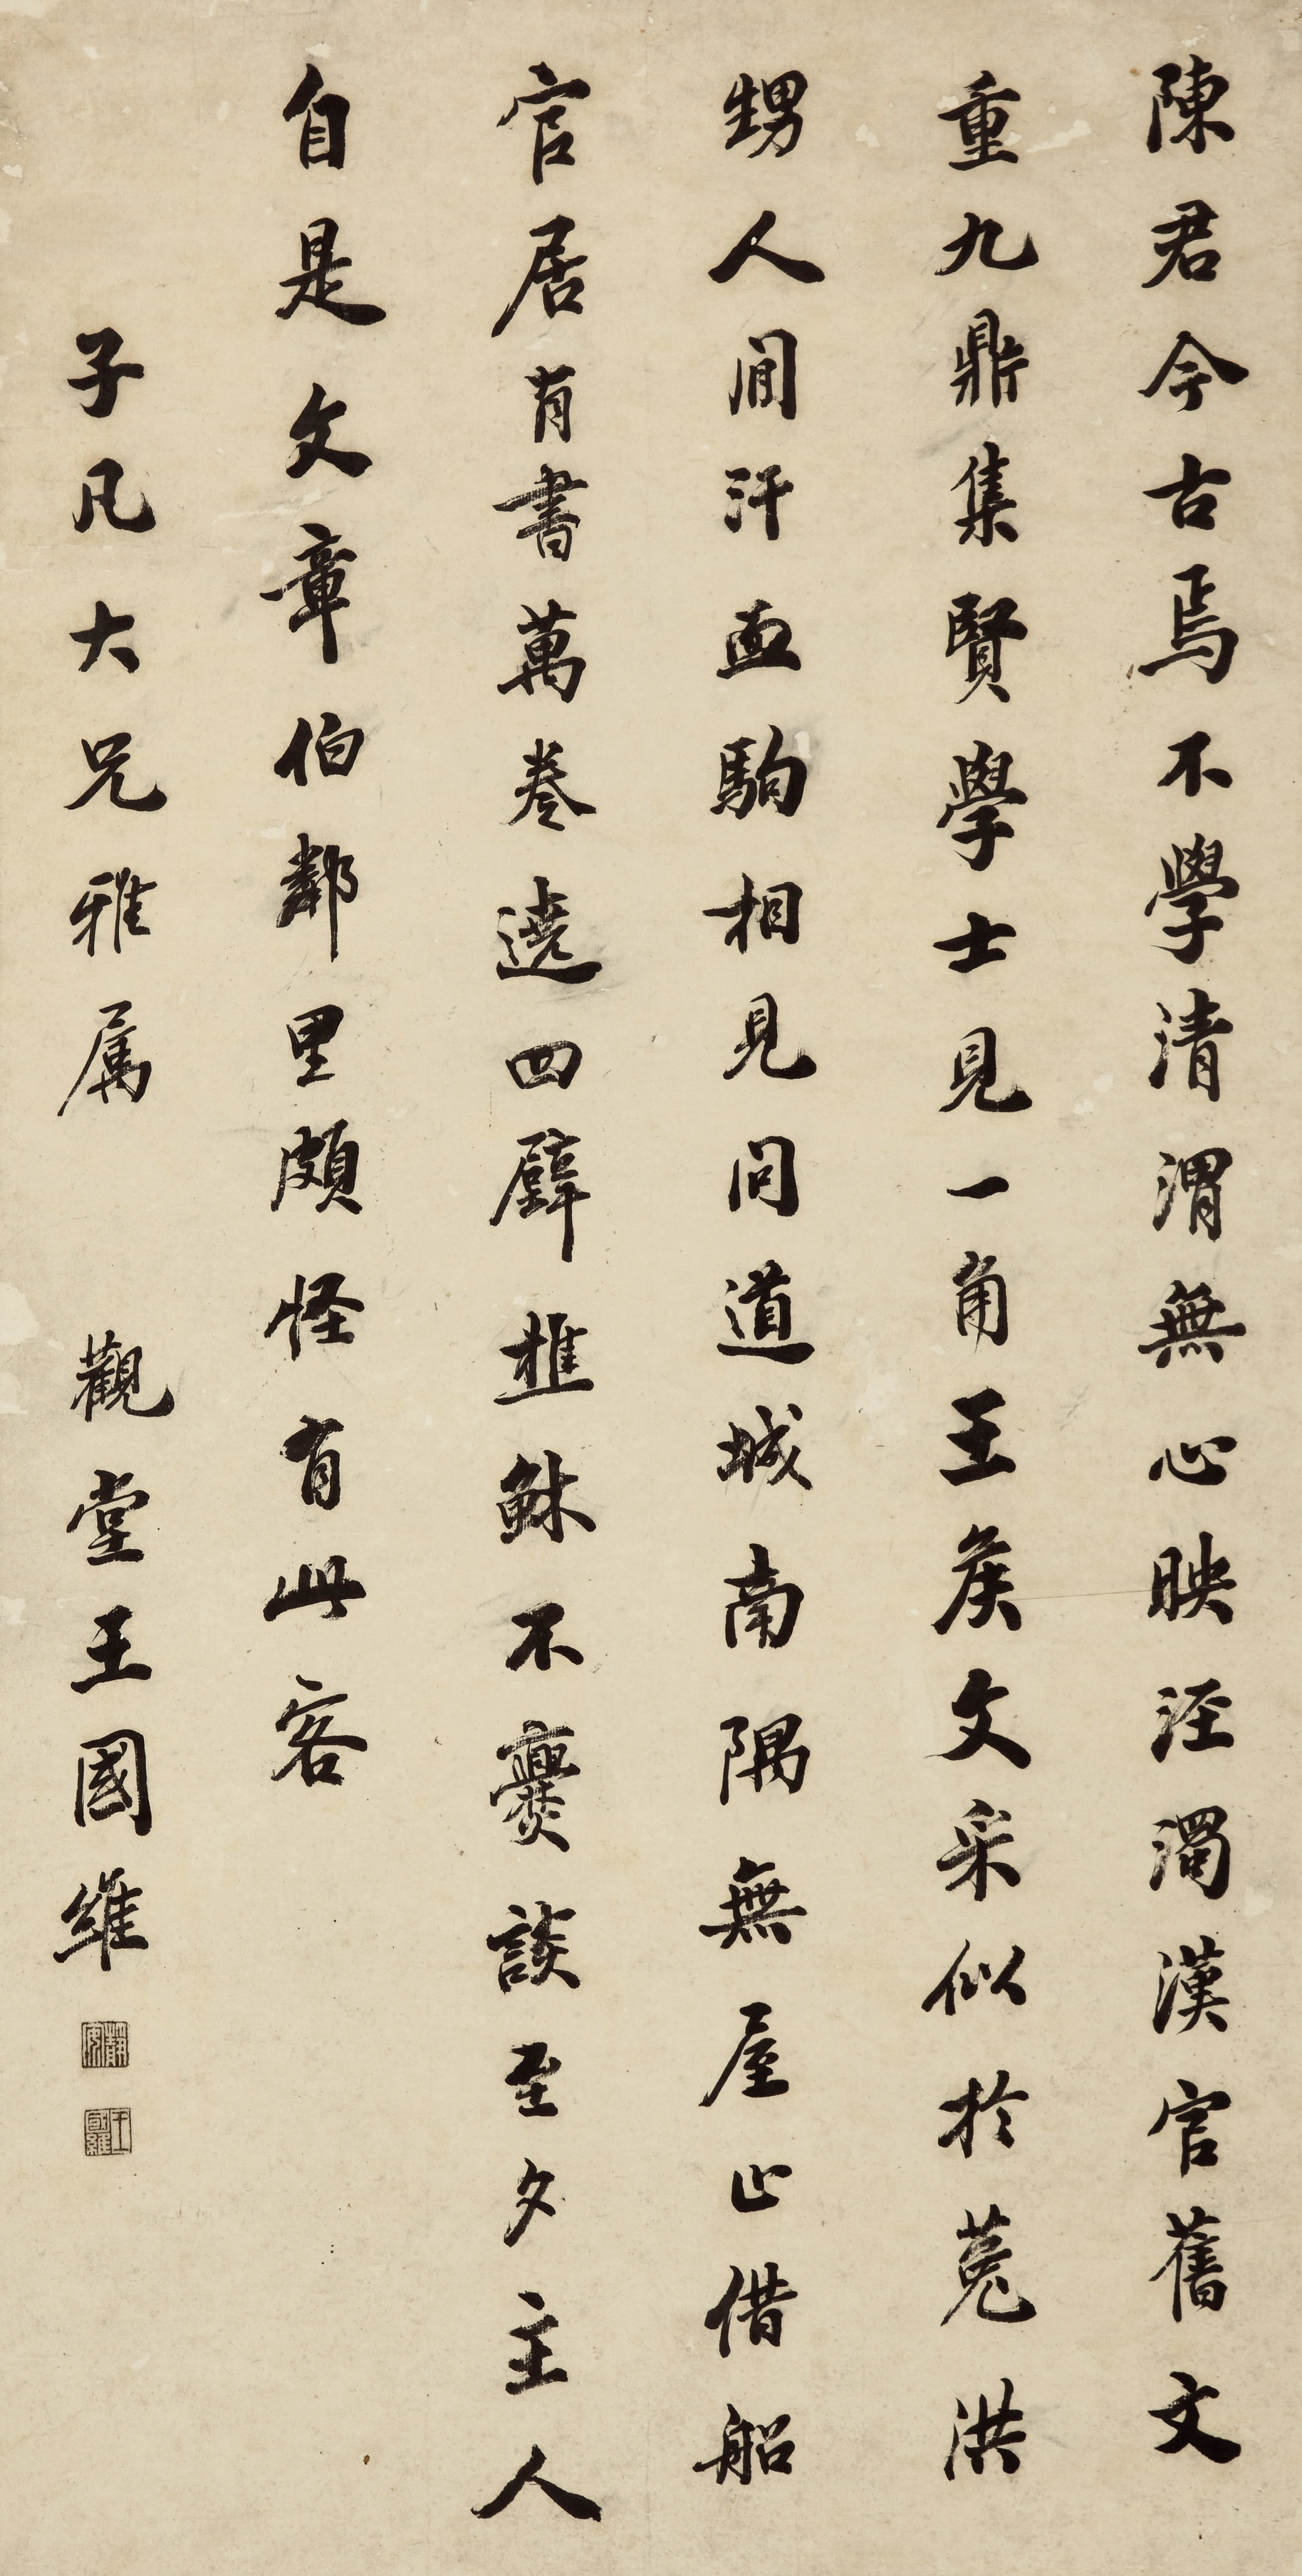 陳君今古焉不學清渭無心映涇濁漢官舊文
重九鼎集賢學士見一角王矦文采似於菟洪
甥人間汗血駒相見問道城南隅無屋止借船
官居有書萬卷遶四壁樵穌不爨談至夕主人
自是文章伯鄰里頗怪有此客
子凡大兄雅属 觀堂王國維
靜安
王國維